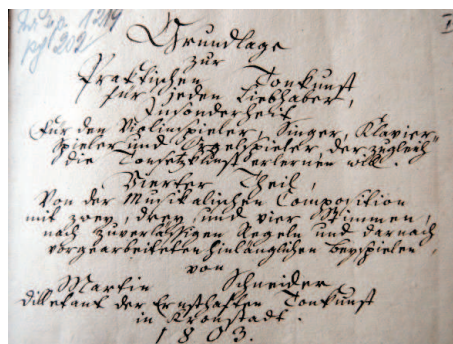 1219
pg 202
I
Grundlage
zur
Praktischen Tonkunst
für jeden Liebhaber,
Insonderheit
Für den Violinspieler, Singer, Klavier=
Spieler und Orgelspieler der zugleich
die Tonsetzkunst erlernen will.
Vierter Theil,
Von der Musikalischen Composition
mit zwey, drey und vier Stimmen,
nach zuverlässigen Regeln und darnach
vorgearbeiteten hinlänglichen beyspielen,
von
Martin Schneider
dilletant der Ernsthaften Tonkunst
in Kronstadt.
1803.